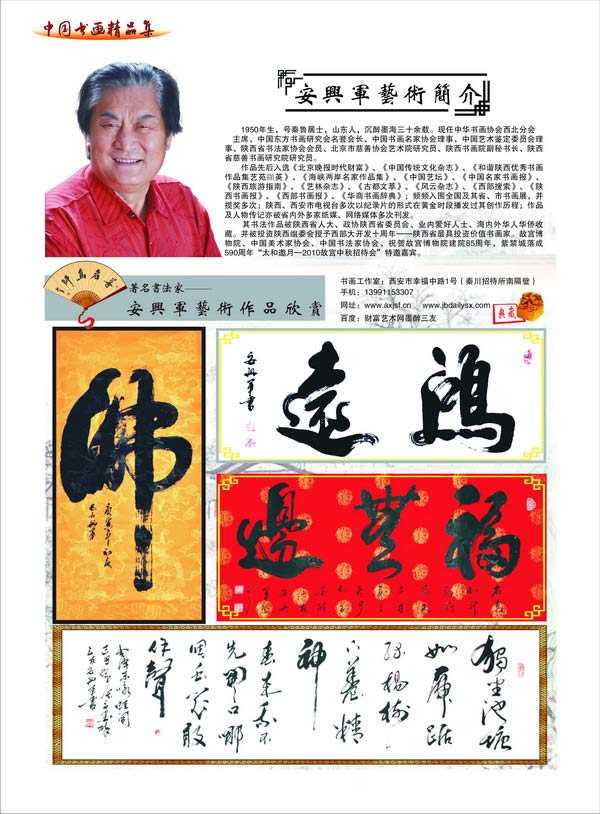 中国书画精品集
安興軍藝術簡介
1950年生，号秦鲁居士，山东人，沉醉墨海三十余载。现任中华书画协会西北分会
主席、中国东方书画研究会名誉会长、中国书画名家协会理事，中国艺术鉴定委员会理
事、陕西省书法家协会会员、北京市慈善协会艺术研究院、陕西书画院副秘书长、陕西
省慈善书画研究院研究员。
作品先后入选《北京晚报时代财富》、《中国传统文化杂志》、《和谐陕西优秀书画
作品集艺苑英》、《海峡两岸名家作品集》、《中国艺坛》、《中国名家书画报》、
《陕西旅游指南》、《艺林杂志》、《古都文萃》、《风云杂志》、《西部搜索》、《陕
西书画报》、《西部书画报》、《华商书画辞典》；频频入围全国及其省、市书画展，并
摄奖多次；陕西、西安市电视台多次以纪录片的形式在黄金时段播发过其创历程；作品
及人物传记亦被省内外多家纸媒、网络媒体多次刊发。
其书法作品被陕西省人大、政协陕西省委员会、业内爱好人士、海内外华人华侨收
藏。并被投资陕西组委会授予西部大开发十周年——陕西省最具投资价值书画家。故宫博
物院、中国美术家协会、中国书法家协会、祝贺故宫博物院建院85周年，紫禁城落成
590周年“太和邀月—2010故宫中秋招待会”特邀嘉宾。
著名書法家——
安興軍藝術作品欣賞
书画工作室：西安市幸福中路1号（秦川招待所南隔壁）
手机：13991153307
网址：www.axjsf.cn www.jbdailysx.com
百度：财富艺术网墨醉三友
典藏
佛
庚寅年初夜
鴻遠
安興軍书
福無邊
獨坐池塘
如虎踞
綠楊樹
下養精
神
春來我不
先開口哪
個蟲兒敢
作聲
毛澤東咏蛙